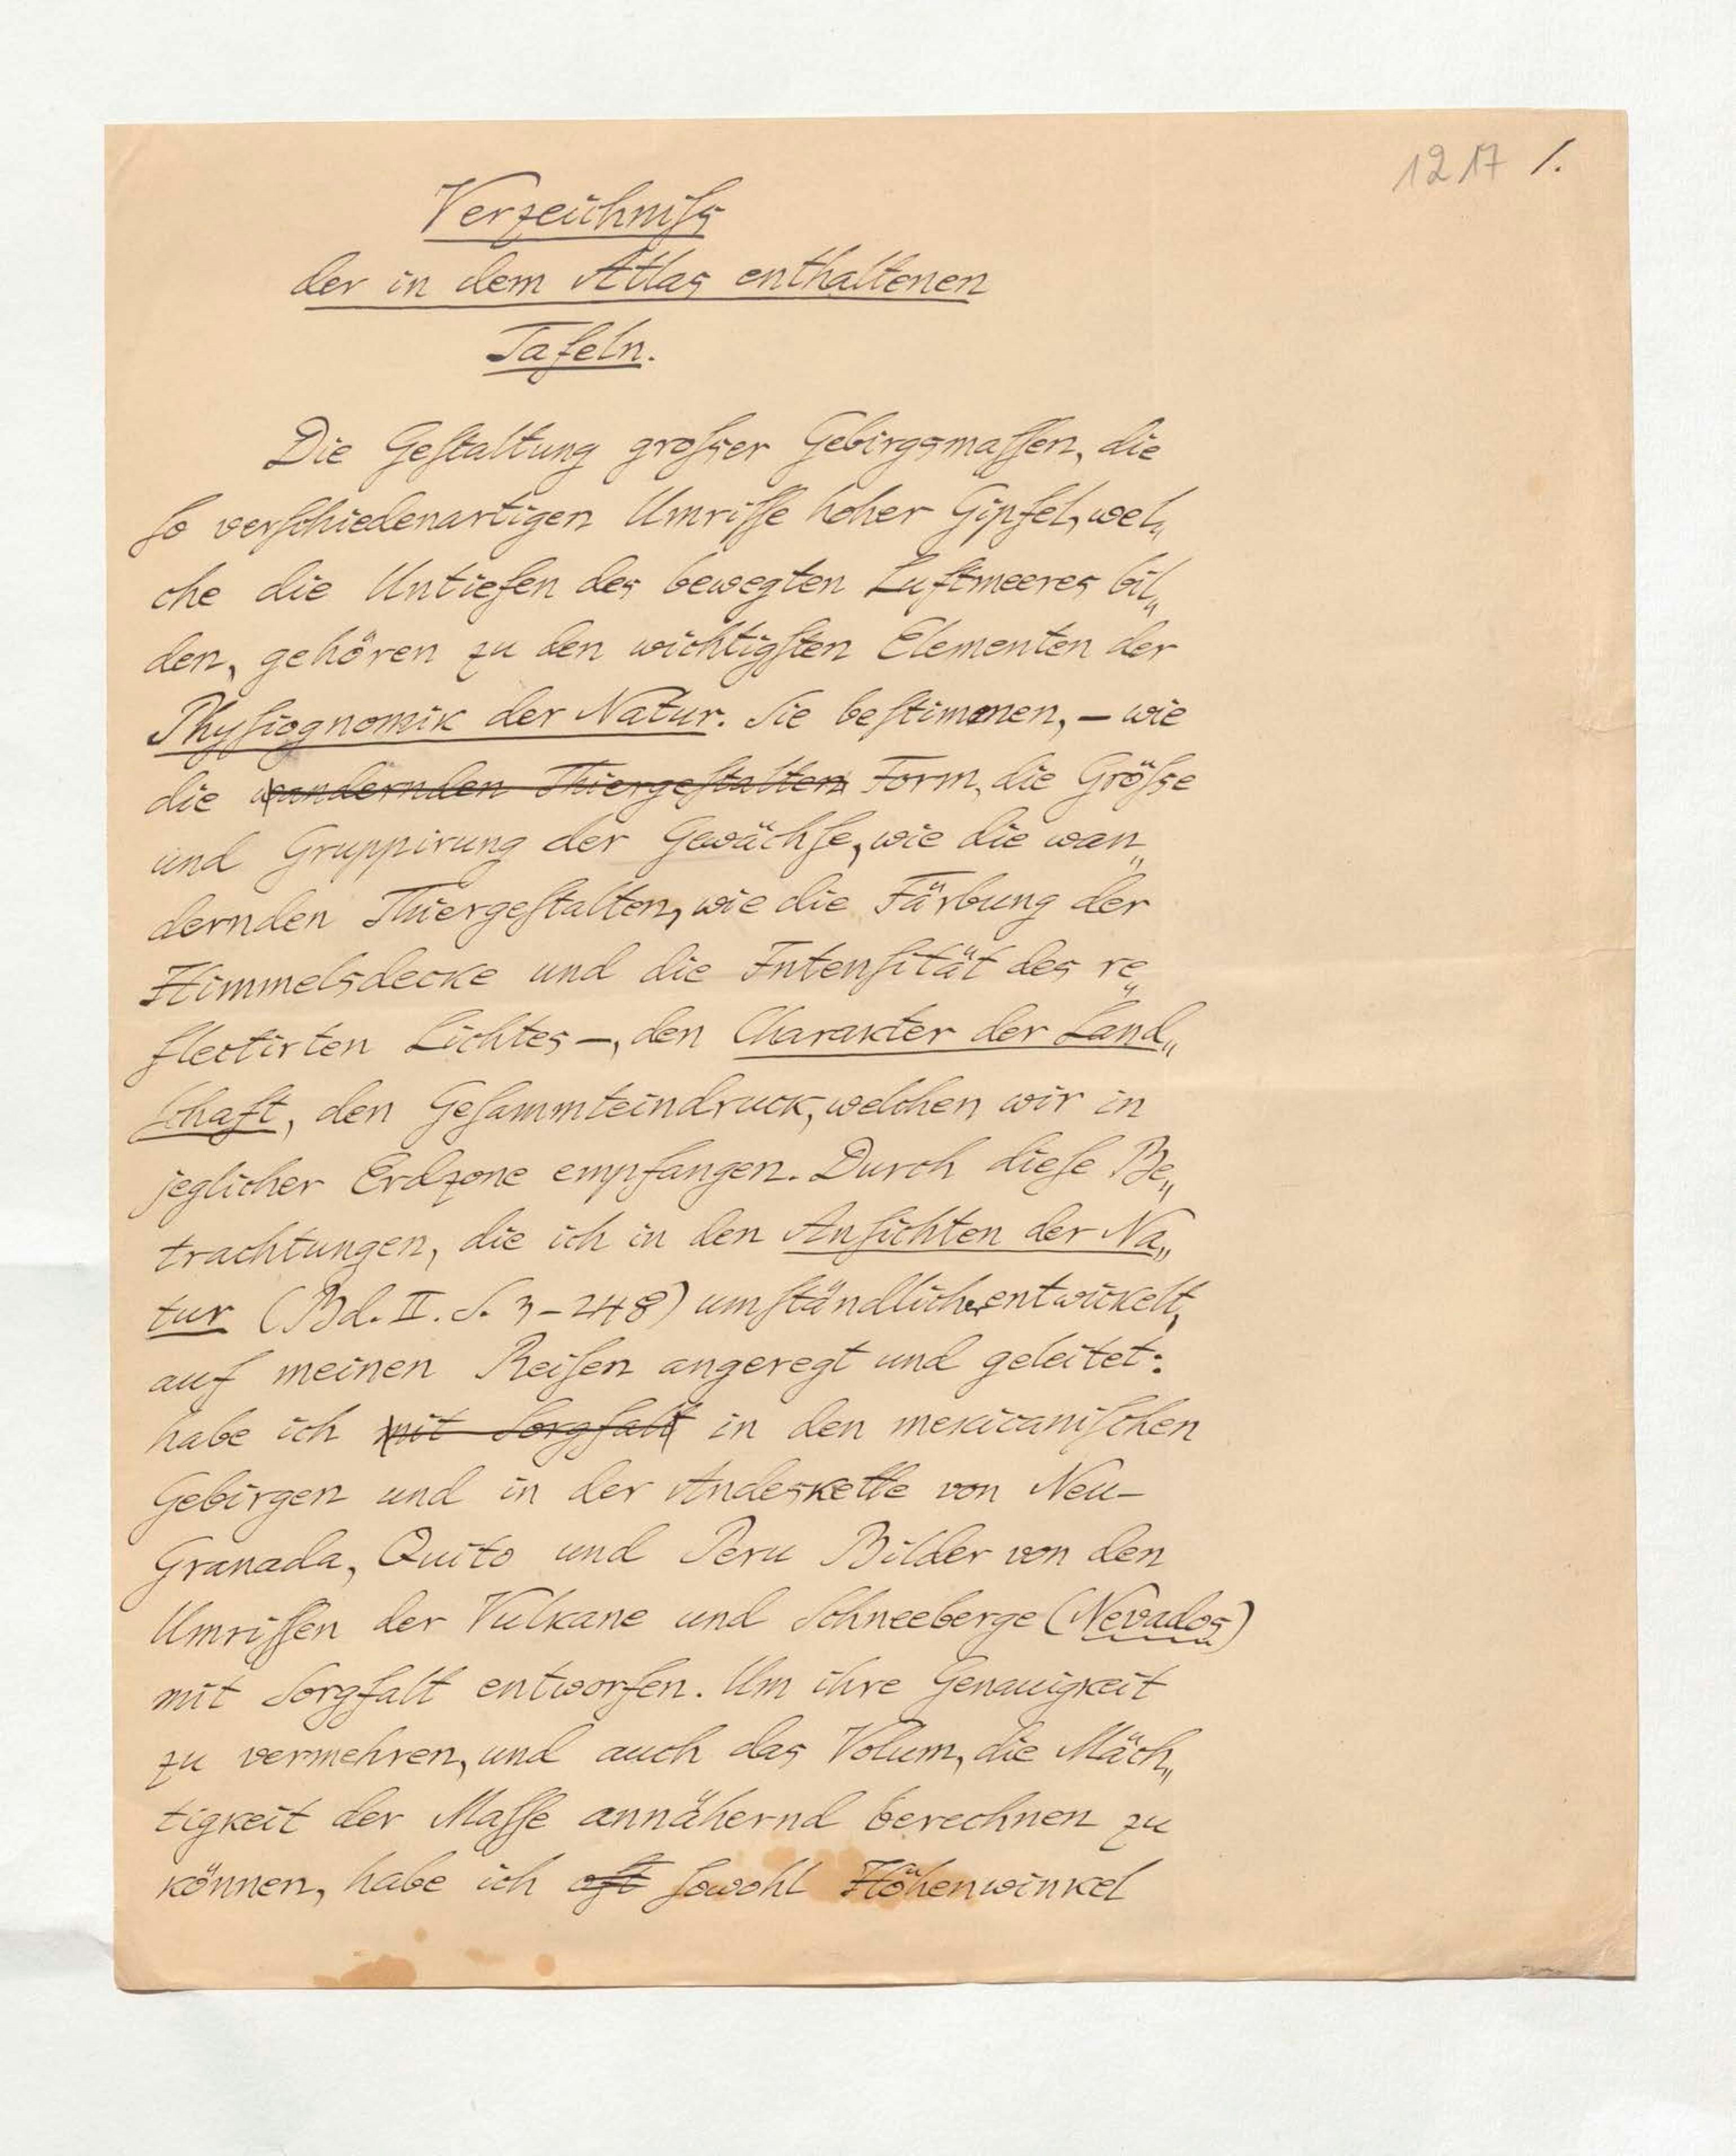 1217 1.
Verzeichniſs
der in dem Atlas enthaltenen
Tafeln.
Die Geſtaltung groſser Gebirgsmaſſen, die
ſo verſchiedenartigen Umriſſe hoher Gipfel, wel„
che die Untiefen des bewegten Luftmeeres bil„
den, gehören zu den wichtigſten Elementen der
Phyſiognomik der Natur. Sie beſtimmen, – wie
die wandernden Thiergeſtalten Form, die Gröſse
und Gruppirung der Gewächſe, wie die wan„
dernden Thiergeſtalten, wie die Färbung der
Himmelsdecke und die Intenſität des re„
flectirten Lichtes –, den Charakter der Land„
ſchaft, den Geſammteindruck, welchen wir in
jeglicher Erdzone empfangen. Durch dieſe Be„
trachtungen, die ich in den Anſichten der Na„
tur (Bd. II. S. 3–248) umſtändlicher entwickelt,
auf meinen Reiſen angeregt und geleitet:
habe ich mit Sorgfalt in den mexicaniſchen
Gebirgen und in der Andeskette von Neu-
Granada, Quito und Peru Bilder von den
Umriſſen der Vulkane und Schneeberge (Nevados)
mit Sorgfalt entworfen. Um ihre Genauigkeit
zu vermehren, und auch das Volum, die Mäch„
tigkeit der Maſſe annähernd berechnen zu
können, habe ich oft ſowohl Höhenwinkel